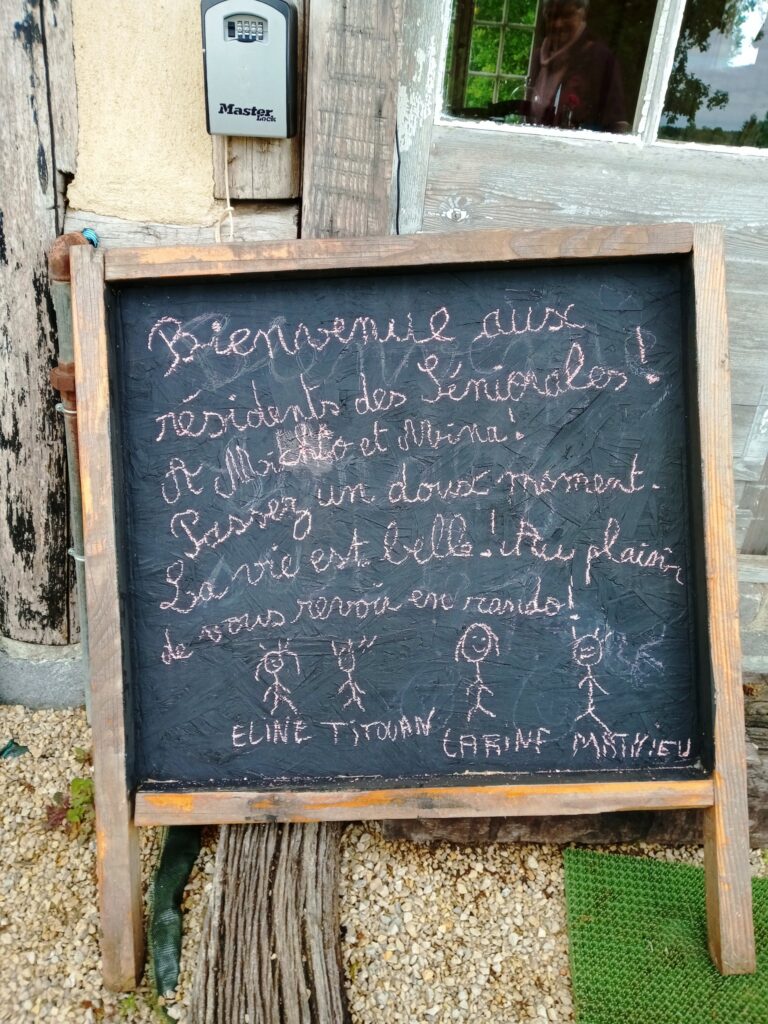 Master
Lock
Bienvenue aux
résidents des Sénioriales !
A Michto et Mina!
Passez un doux moment.
La vie est belle! Au plaisir
de vous revoir en rando!
ELINE TITOUAN CARINE MATHIEU